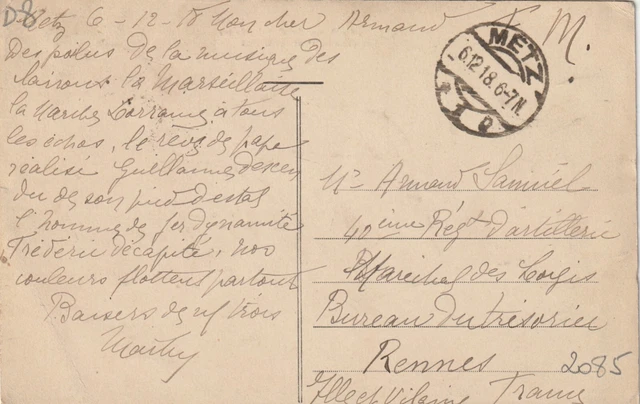 D8
Metz 6-12-18 Mon cher Armand
F. M.
METZ
6.12.18.6-7N.
Des poilus de la musique des
la Marseillaise
la Marche Lorraine à tous
les échos, le rêve de papa
réalisé Guillaume descen
du de son piedestal
l'homme de fer dynamité
Frédéric décapité, nos
couleurs flottent partout
Baisers de ns trois
Mr Armand Samuel
40ième Régt d'artillerie
Maréchal des Logis
Bureau du trésorier
Rennes
2085
Ille et Vilaine France